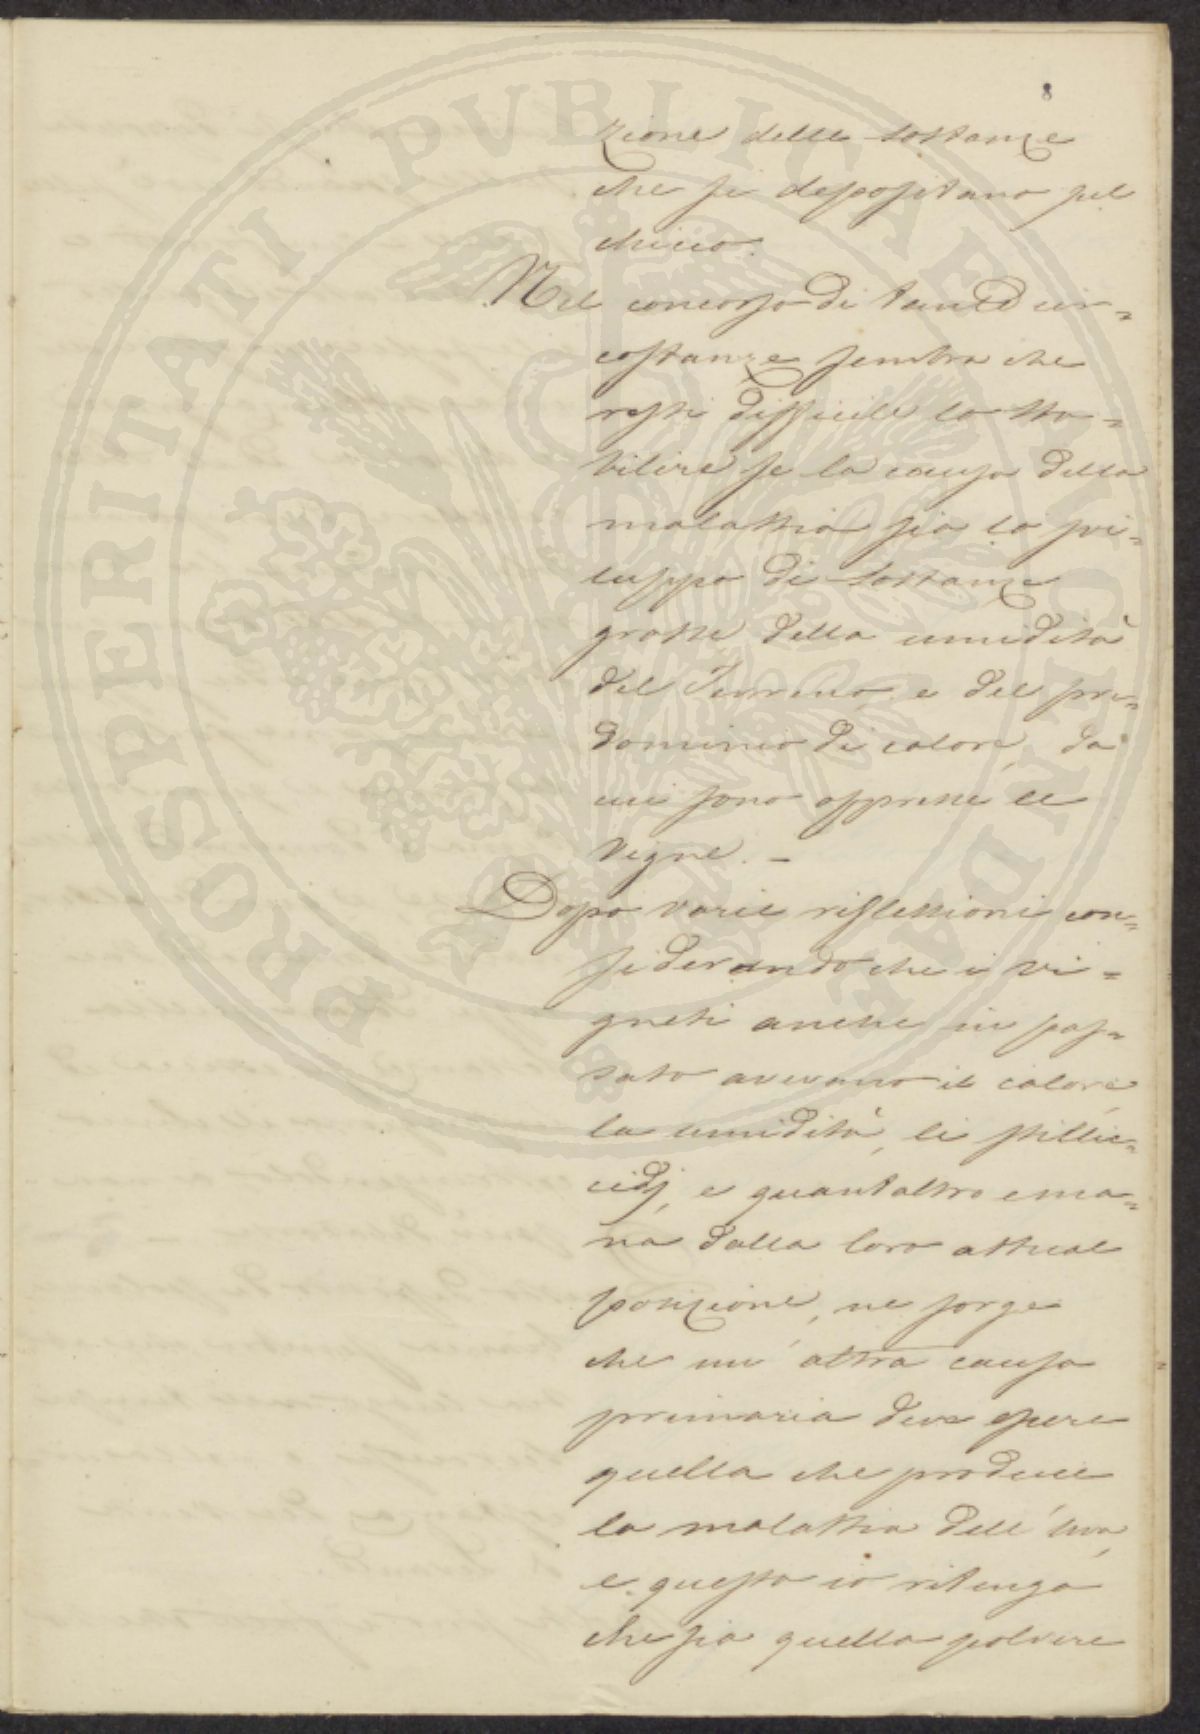 8
zione delle sostanze
che si depositano sul
chicco.
Nel concorso di tante cir=
costanze sembra che
resti difficile lo sta=
bilire se la causa della
malattia sia lo svi=
luppo di sostanze
grasse della umidità
del Terreno, e del pre=
dominio di calore, da
cui sono oppresse le
vigne. –
Dopo varie riflessioni con=
siderando che i vi=
gneti anche in pas=
sato avevano il calore,
la umidità, li stilli=
cidj, e quant'altro ema=
na dalla loro attual
posizione, ne sorge
che un'altra causa
primaria deve essere
quella che produce
la malattia dell'uva,
e questa io ritengo
che sia quella polvere
PROSPERITATI PVBLICAE AVGENDAE